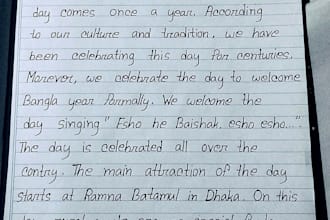 day comes once a year. According
to our culture and tradition, we have
been celebrating this day for centuries.
Morever, we celebrate the day to welcome
Bangla year formally. We welcome the
day singing "Esho he Baishak, esho esho..."
The day is celebrated all over the
contry. The main attraction of the day
starts at Ramna Batamul in Dhaka. On this